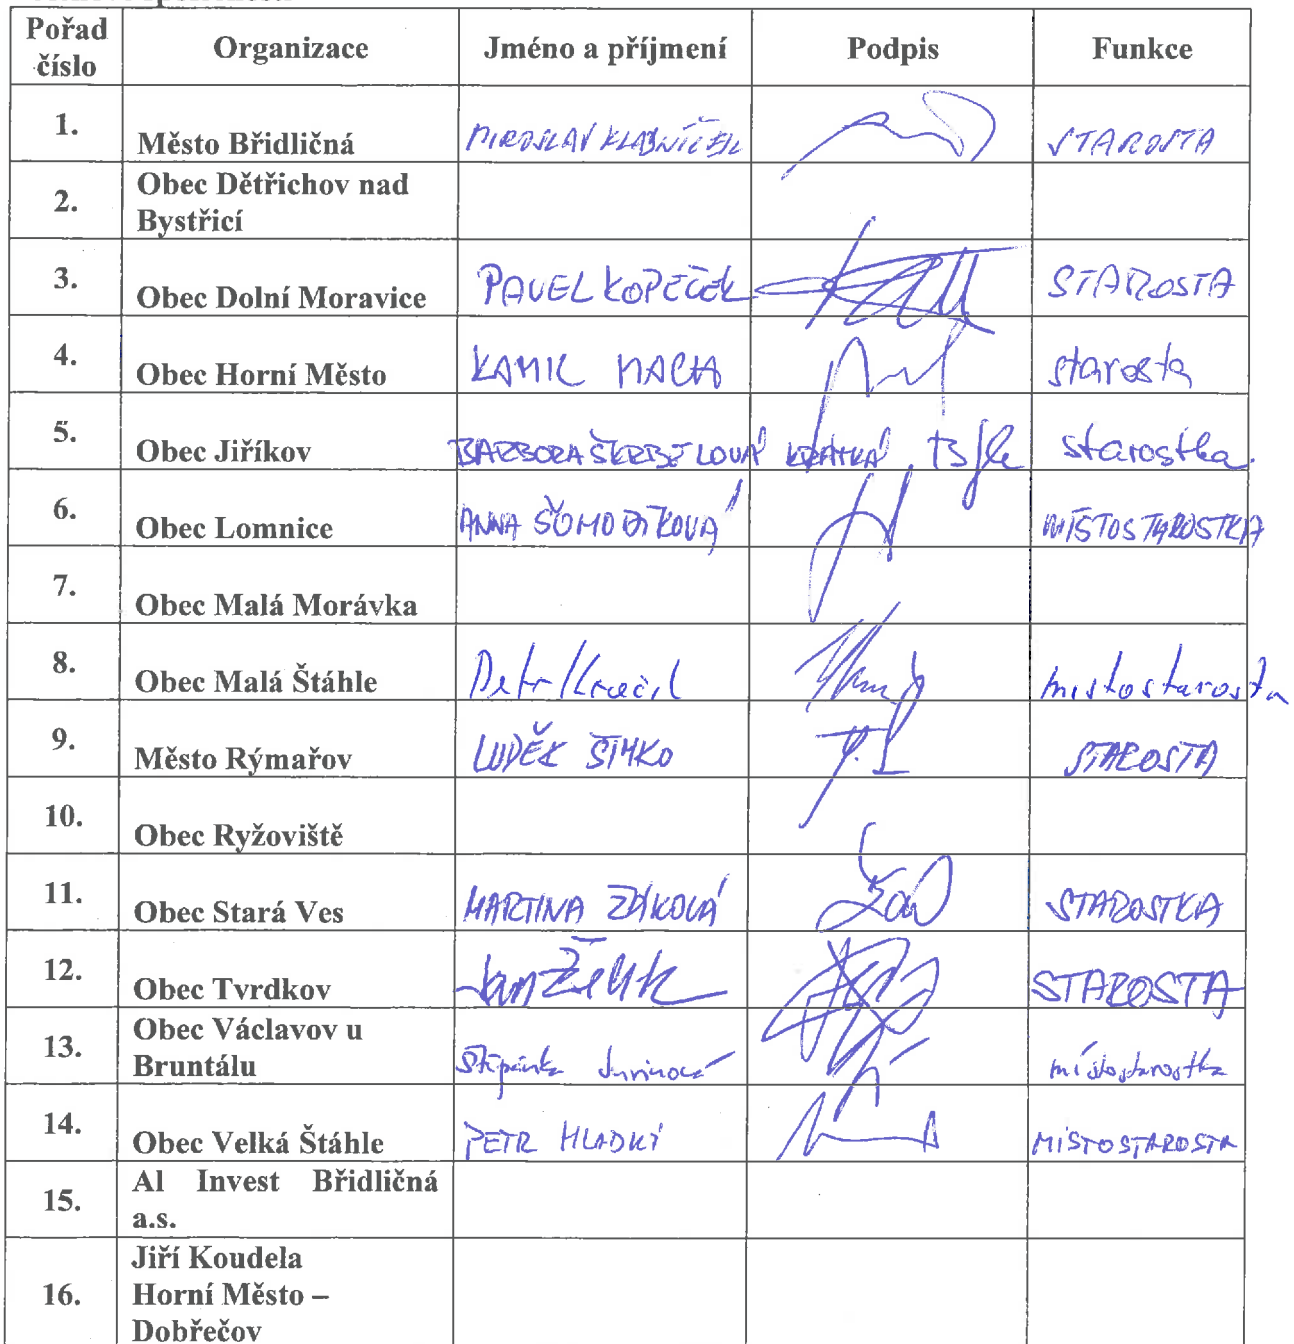 Pořad číslo Organizace Jméno a příjmení Podpis Funkce
1. Město Břidličná MIROSLAV KLABNÍČEK STAROSTA
2. Obec Dětřichov nad
Bystřicí
3. Obec Dolní Moravice PAVEL KOPEČEK STAROSTA
4. Obec Horní Město KAMIL MACHA starosta
5. Obec Jiříkov BARBORA ŠKRBELOVÁ KRÁTKÁ starostka
6. Obec Lomnice ANNA MÍSTOSTAROSTKA
7. Obec Malá Morávka
8. Obec Malá Štáhle Petr místostarosta
9. Město Rýmařov LUDĚK ŠIMKO STAROSTA
10. Obec Ryžoviště
11. Obec Stará Ves MARTINA ŽÁKOVÁ STAROSTKA
12. Obec Tvrdkov Jan STAROSTA
13. Obec Václavov u
Bruntálu Štěpánka místostarostka
14. Obec Velká Štáhle PETR HLADKÝ MÍSTOSTAROSTA
15. Al Invest Břidličná
a.s.
16. Jiří Koudela
Horní Město –
Dobřečov